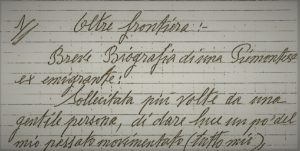 1/ Oltre frontiera:-
Breve Biografia di una Piemontese
ex emigrante:
Sollecitata più volte da una
gentile persona, di dare luce un po' del
mio passato movimentato (tutto mio),